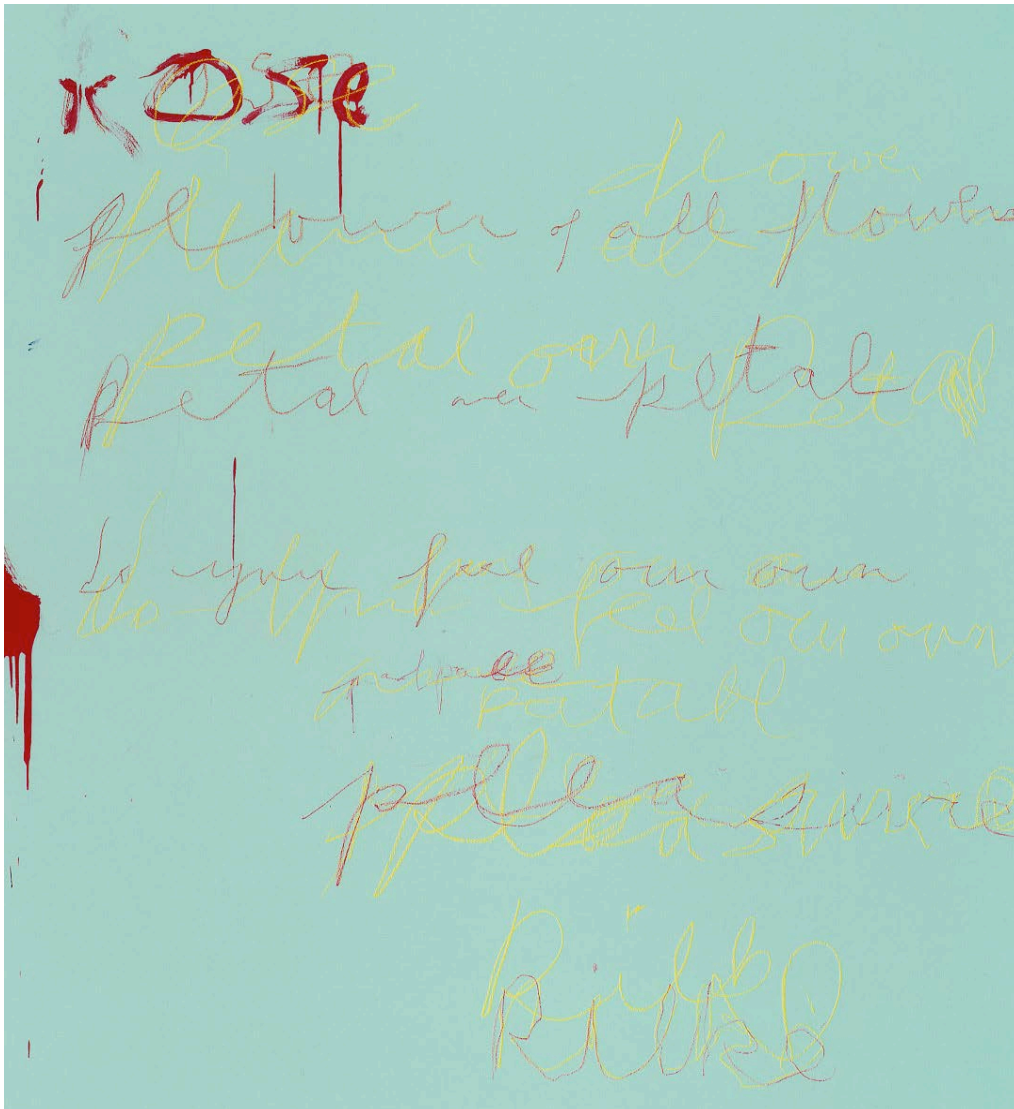 ROSE
flower of all flowers
petal over petal
to
feel our own
pleasure
Rilke